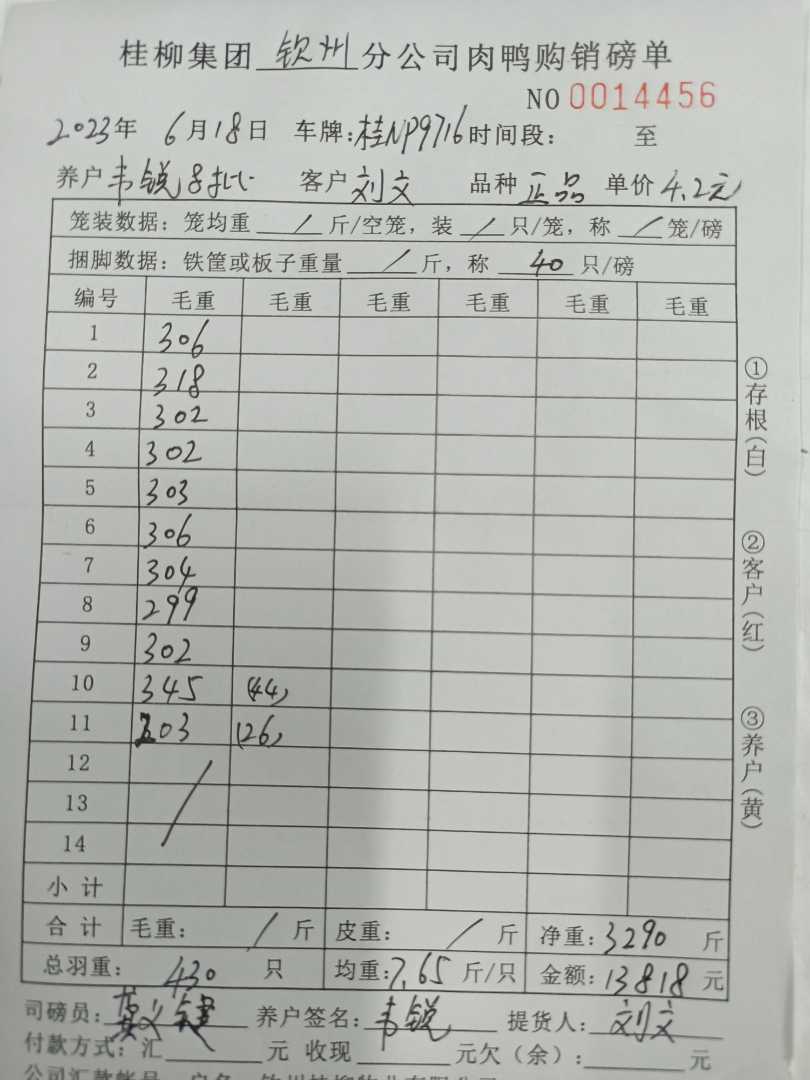 桂柳集团 钦州 分公司肉鸭购销磅单
NO 0014456
2023年 6月18日 车牌:桂NP9716 时间段: 至
养户 韦锐 客户 刘文 品种 正品 单价 4.2元
笼装数据: 笼均重 / 斤/空笼, 装 / 只/笼, 称 / 笼/磅
捆脚数据: 铁筐或板子重量 / 斤, 称 40 只/磅
编号 毛重 毛重 毛重 毛重 毛重 毛重
1 306
2 318
3 302
4 302
5 303
6 306
7 304
8 299
9 302
10 345 (44)
11 203 (26)
12
13 /
14
小计
合计 毛重: / 斤 皮重: / 斤 净重:3290 斤
总羽重: 430 只 均重:7.65 斤/只 金额:13818 元
司磅员: 养户签名: 韦锐 提货人: 刘文
付款方式: 汇 元 收现 元欠(余): 元
①存根(白)
②客户(红)
③养户(黄)